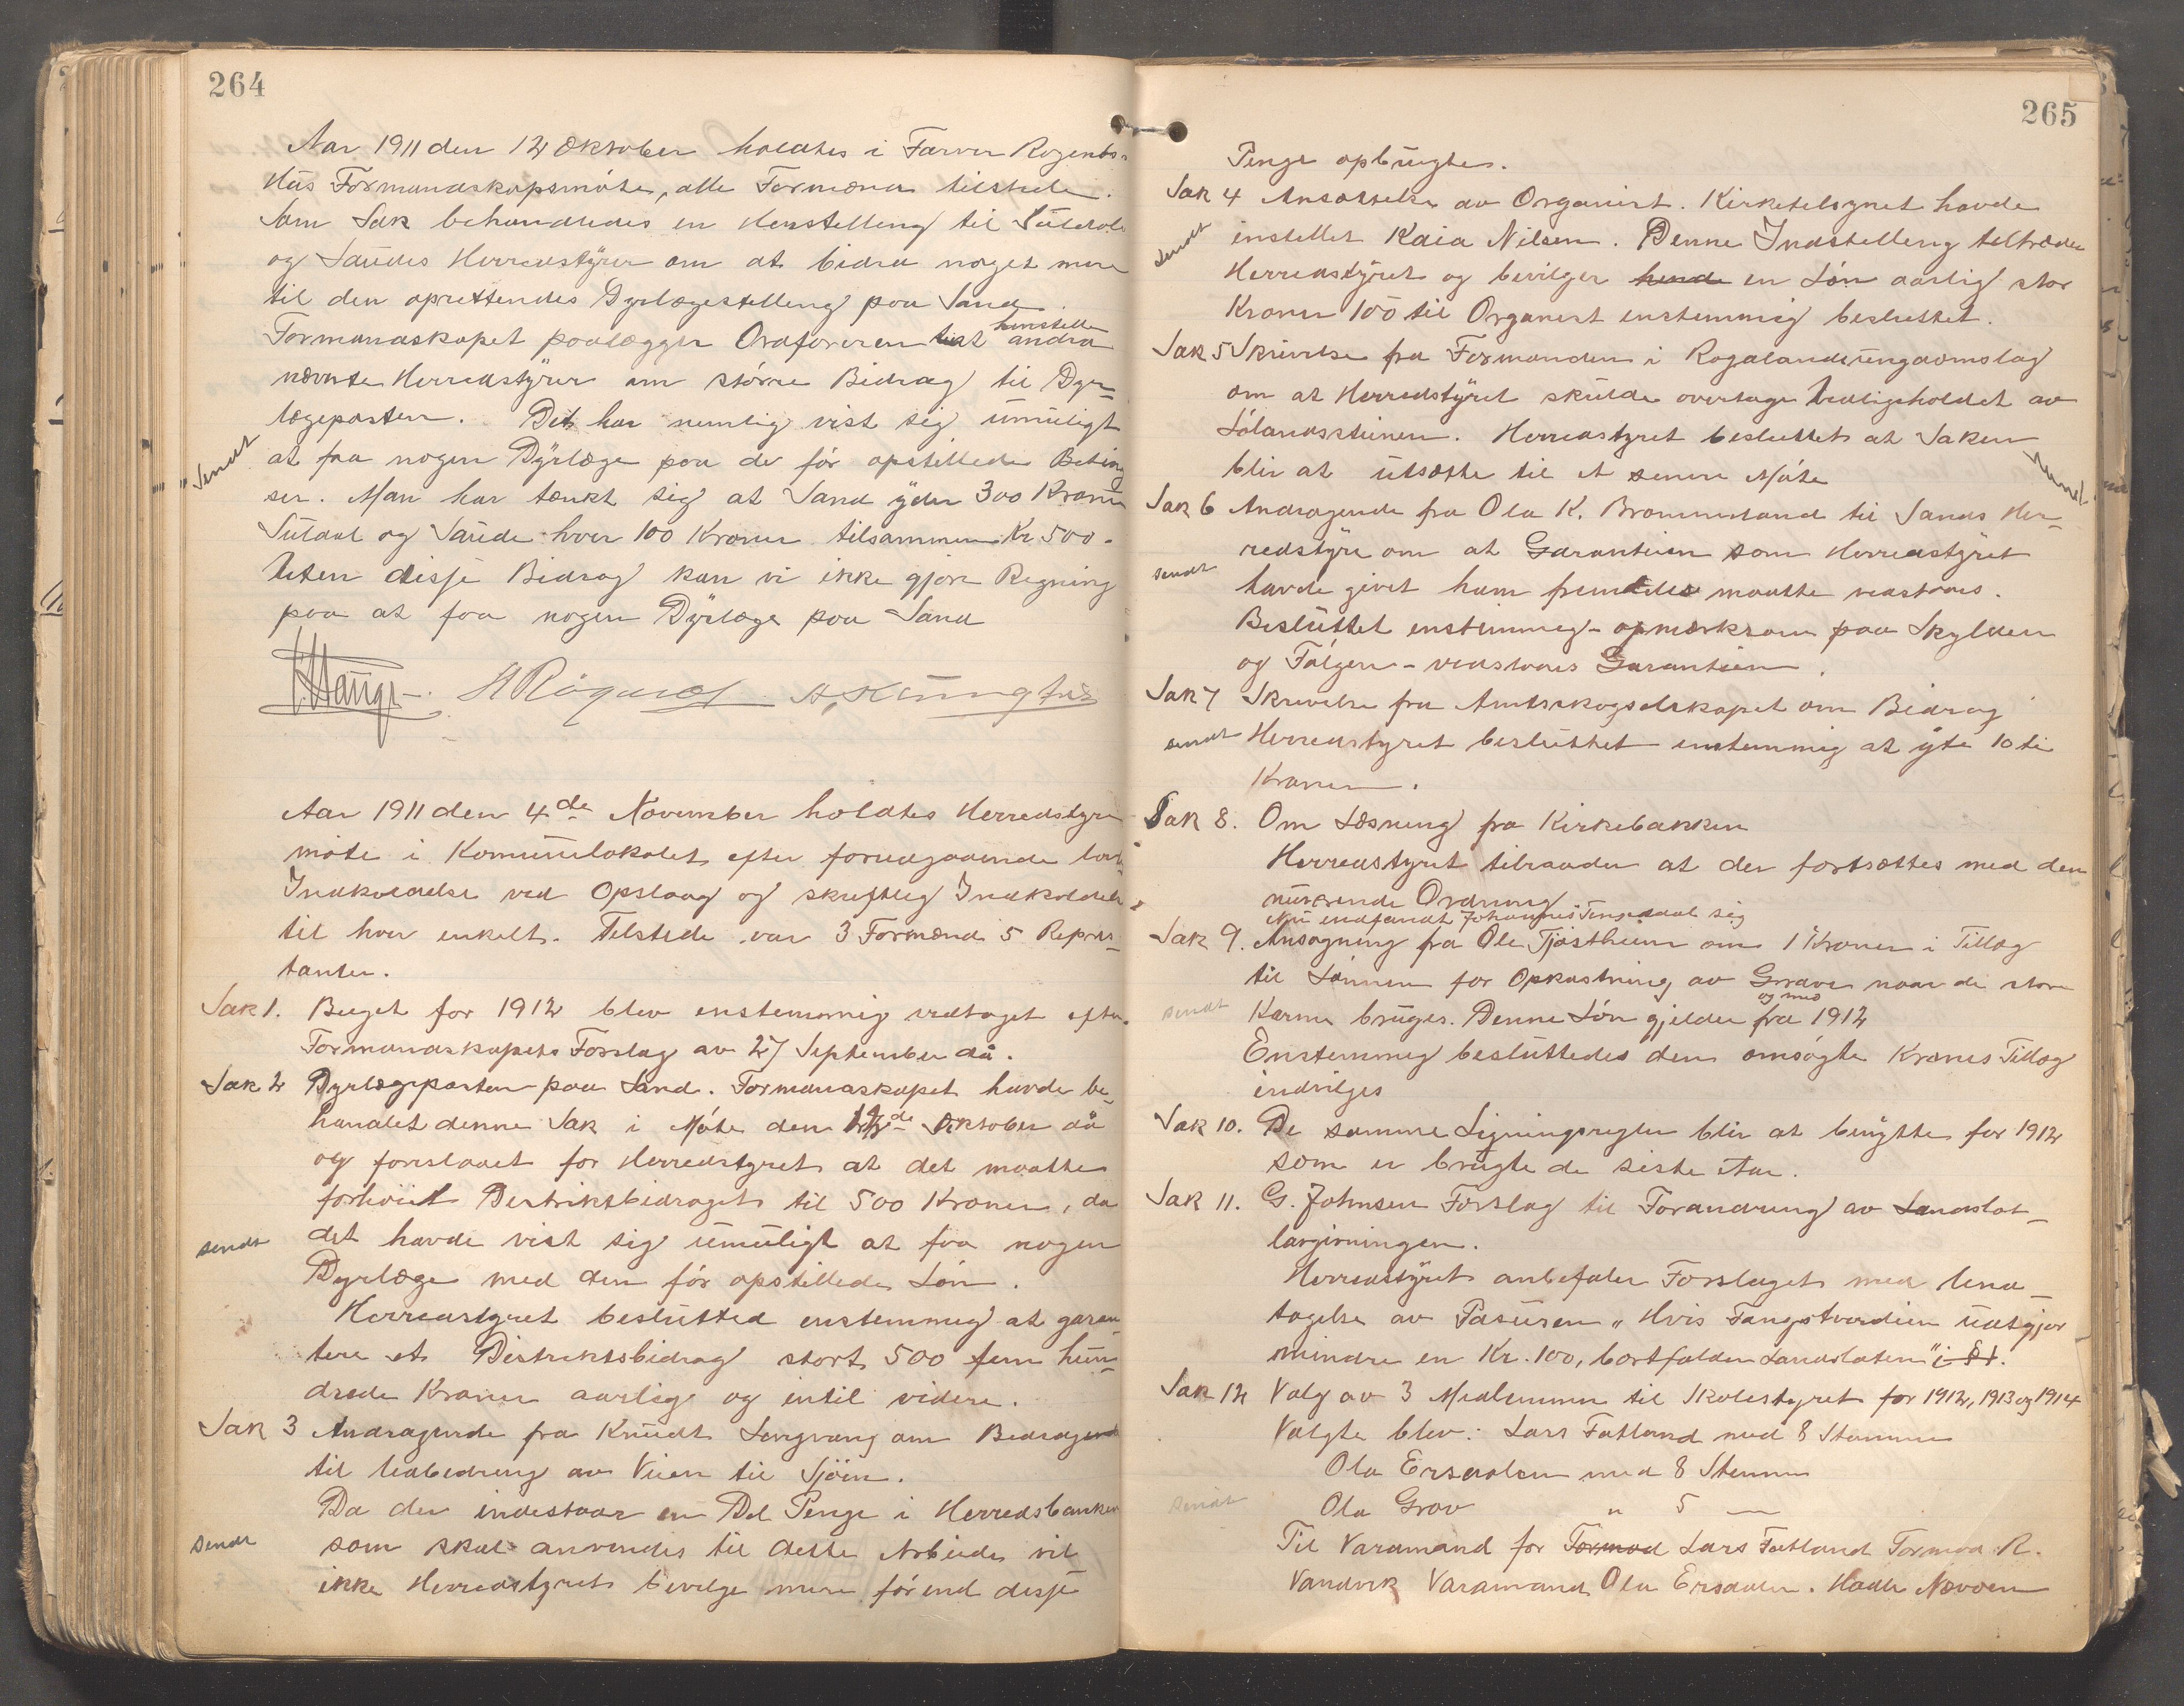 264
Aar 1911 den 12 Oktober holdtes i Farver Rogends
Hus Formandskapsmöte, alle Formænd tilstede.
Som Sak behandledes en Henstelling til Suldals
og Saudes Herredstyrer om at bidra noget mere
til den oprettendes Dyrlægestelling paa Sand.
henstille
Formandskapet paalægger Ordföreren at andra
nævnte Herredstyrer om större Bidrag til Dyr-
lægeposten. Det har nemlig vist sig umuligt
Sendt
at faa nogen Dyrlæge paa de för opstillede Beting
ser. Man har tænkt sig at Sand yder 300 Kroner
Suldal og Saude hver 100 Kroner tilsammen Kr 500.
Uten disse Bidrag kan vi ikke gjöre Regning
paa at faa nogen Dyrlæge paa Sand
Aar 1911 den 4de November holdtes Herredstyre
möte i Komunelokalet efter forudgaaende lovl.
Indkaldelse ved Opslaag og skriftlig Indkaldelse
til hver enkelt. Tilstede var 3 Formænd 5 Repræs-
tanter.
Sak 1. Buget for 1912 blev enstemmig vedtaget efter
Formandskapets Forslag av 27 September då.
Sak 2 Dyrlægeposten paa Sand. Formandskapet havde be-
handlet denne Sak i Möte den 12de Oktober då
og foreslaaet for Herredstyret at det maatte
forhöiet Destriktsbidraget til 500 Kroner, da
sendt
det havde vist sig umuligt at faa nogen
Dyrlæge med den för opstillede Lön.
Herredstyret beslutted enstemmig at garan-
tere et Distriktsbidrag stort 500 fem hun-
drede Kroner aarlig og intil videre.
Sak 3 Andragende fra Knudt Lengvang om Bedragende
til Udbedring av Veien til Sjöen.
Da der indestaar en Del Penge i Herredsbanken
sendt
som skal anvendes til dette Arbeide vil
ikke Herredstyret bevilge mere förend disse
265
Penge opbrugtes.
Sak 4 Ansættelse av Organist. Kirketilsynet havde
sendt
instellet Kaia Nilsen. Denne Indstelling teltræder
Herredstyret og bevilger hende en Lön aarlig stor
Kroner 100 til Organist enstemmig besluttet.
Sak 5 Skrivelse fra Formanden i Rogalandsungdomslag
om at Herredstyret skulde overtage Vedligeholdet av
Lölandsstuenen. Herredstyret besluttet at Saken
sendt
blir at utsætte til et senere Möte
Sak 6 Andragende fra Ola K. Brommeland til Sands Her-
redstyre om at Garantien som Herredstyret
sendt
havde givet ham fremdeles maatte vedstaaes.
Besluttet enstemmig - opmerksom paa Skylden
og Fölgen - vedstaaes Garantien.
Sak 7 Skrivelse fra Amtsskogselskapet om Bidrag
sendt
Herredstyret besluttet enstemmig at yte 10 ti
Kroner.
Sak 8. Om Læsning fra Kirkebakken
Herredstyret tilraader at der fortsættes med den
nuværende Ordning
Nu indfandt Johannes Tengesdal sig
Sak 9. Ansögning fra Ole Tjöstheim om 1 Kroner i Tillæg
til Lönnen for Opkastning av Grave naar de store
og med
sendt
Karme bruges. Denne Lön gjelder fra 1912
Enstemmig besluttedes den omsögte Krones Tillæg
indvilges
Sak 10. De samme Ligningsregler blir at benytte for 1912
som er brugte de siste Aar.
Sak 11. G. Johnsen Forslag til Forandring av Landslot-
lovgivningen.
Herredstyret anbefaler Forslaget med Und-
tagelse av Pasusen "Hvis Fangstverdien Utdgjör
mindre en Kr. 100, bortfalder Landsloten" i § 1.
Sak 12 Valg av 3 Medlemmer til Skolestyret for 1912, 1913 og 1914
Valgte blev: Lars Fatland med 8 Stemmer
Ola Ersdalen med 8 Stemm
sendt
Ola Grov " 5 —
Til Varamand for Tormod Lars Fatland Tormod R.
Vandvik Varamand Ola Ersdalen. Hadle Nævöen